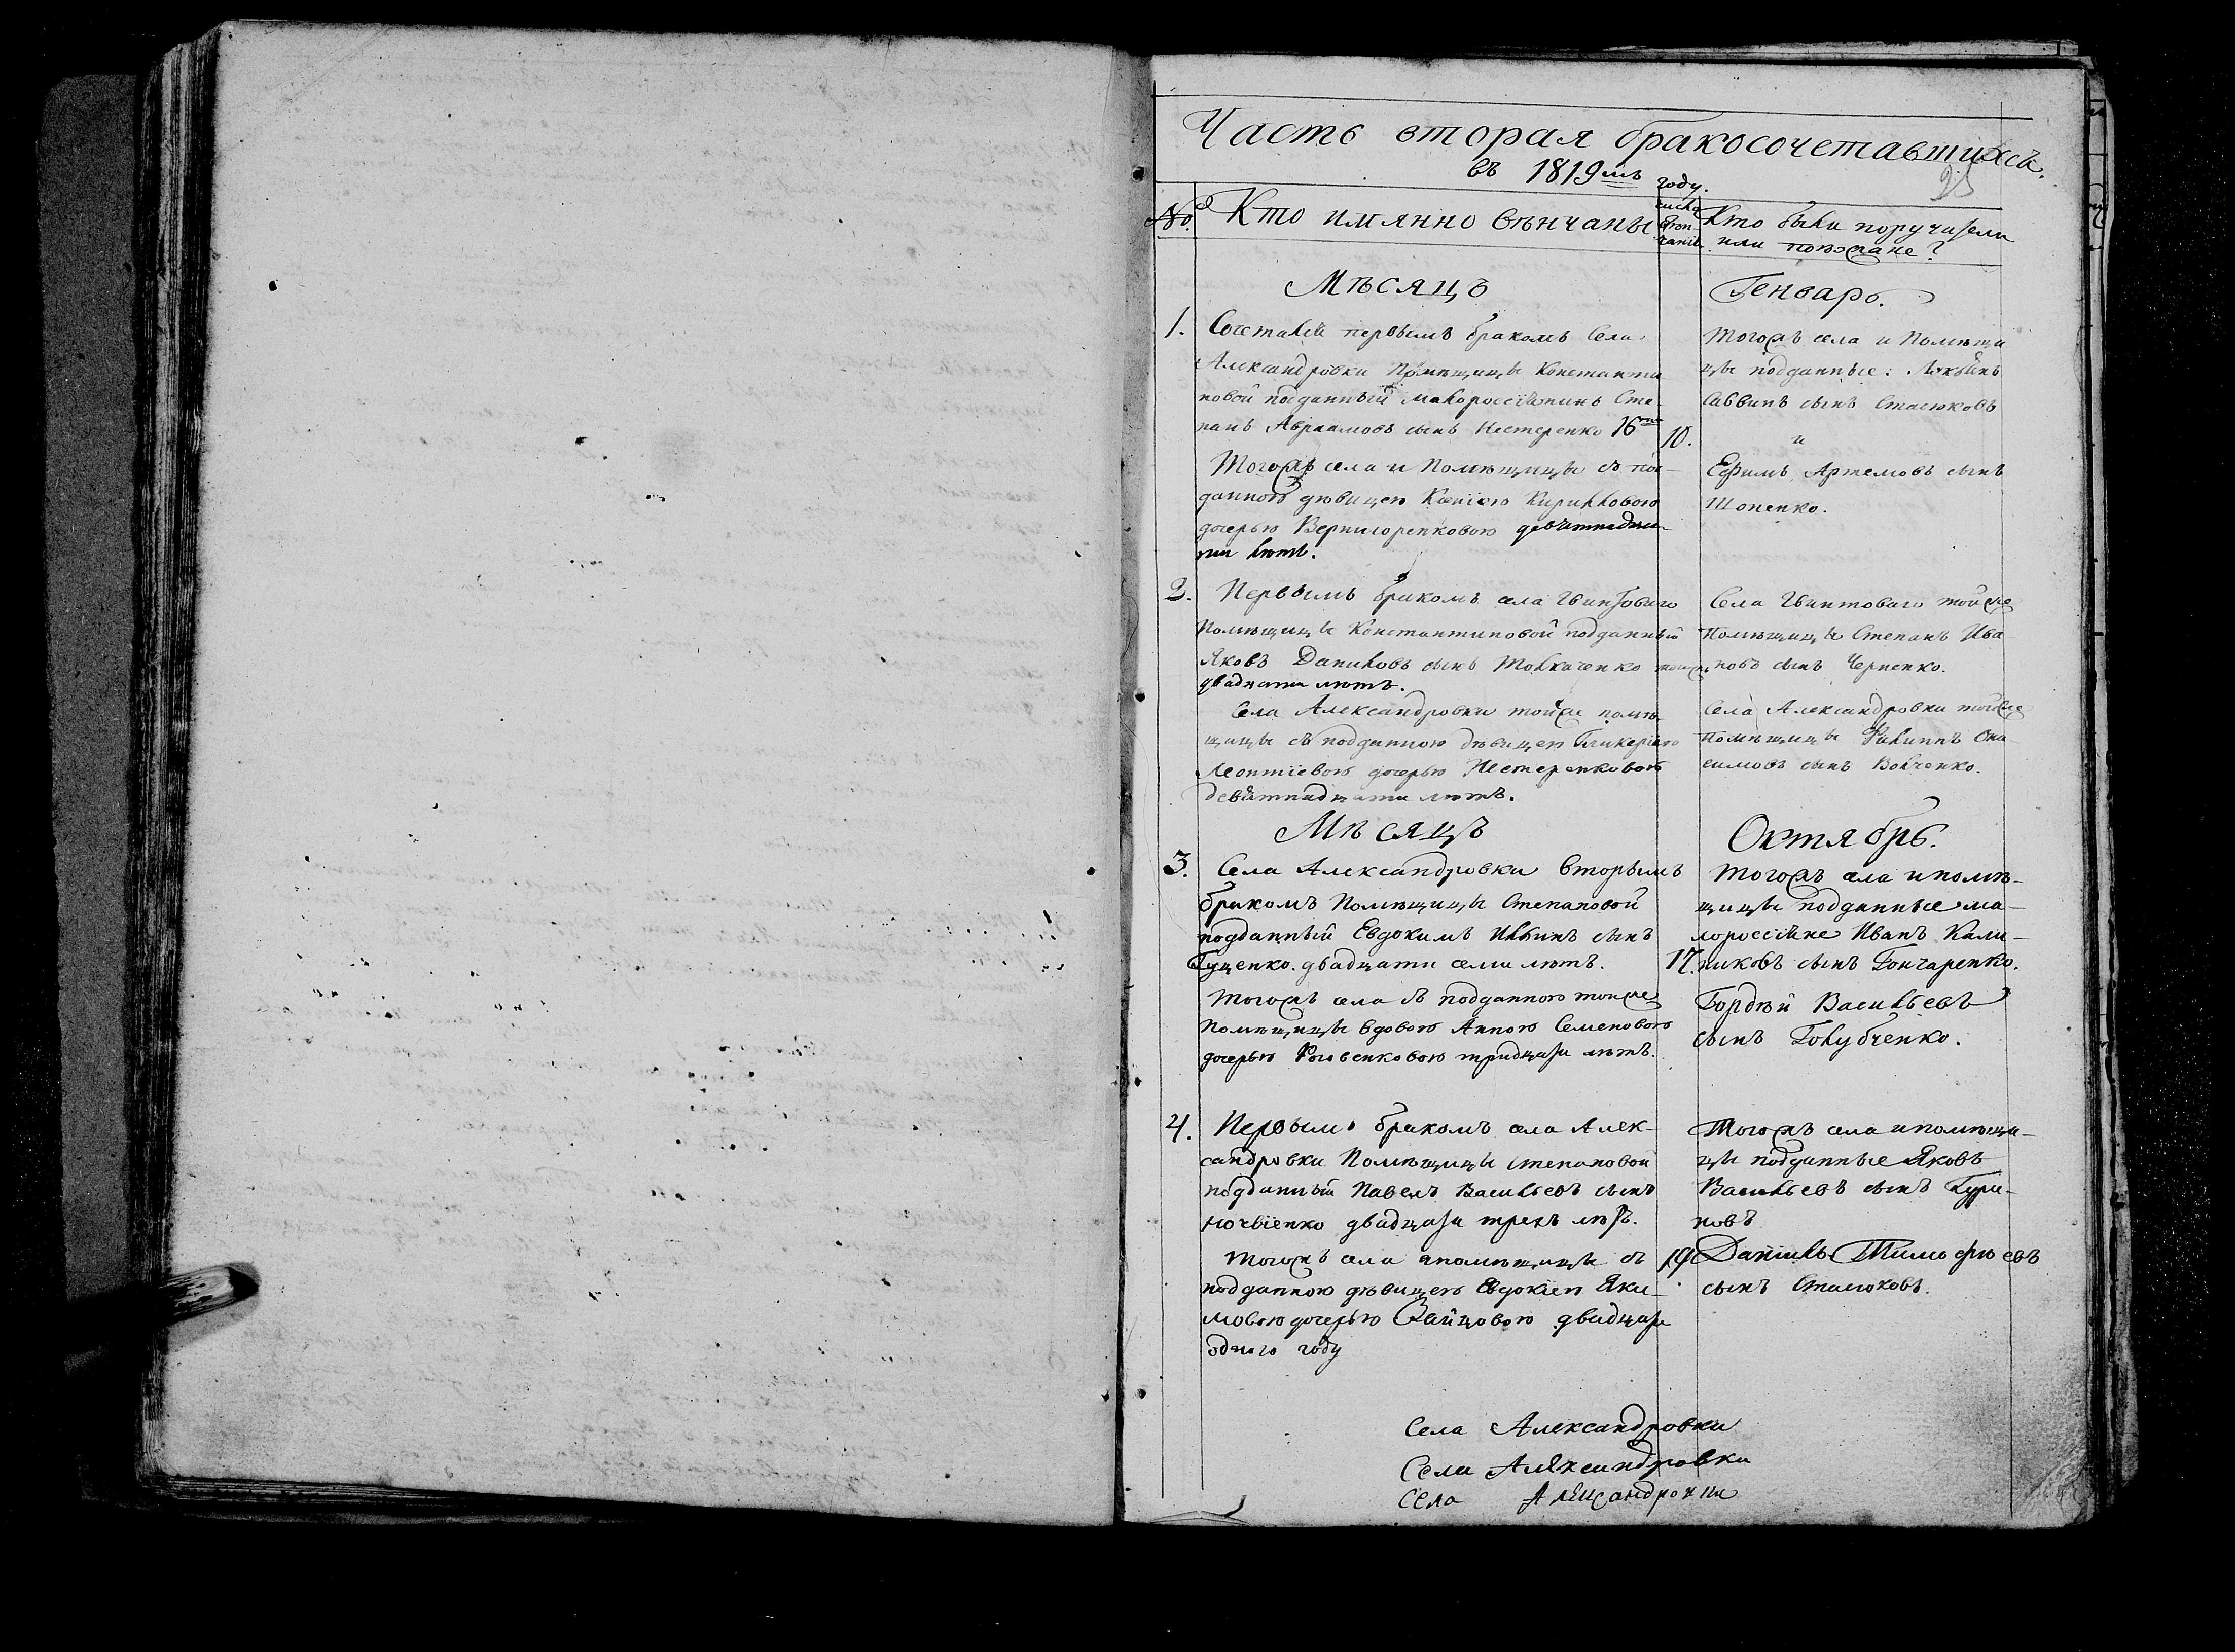 Часть вторая бракосочетавшихсѧ.
въ 1819мъ году.
25
№
Кто имянно вѣнчаны
число вѣнчанія
Кто были поручители
или поѣзжане?
Мѣсяцъ
Генварь.
1.
Сочетался первымъ бракомъ Села
Александровки Помѣщицы Константи
новой подданный малороссіянинъ Сте-
панъ Авраамовъ сынъ Нестеренко 16ти
10.
Тогожъ села и Помѣщицы съ под-
данною дѣвицею Ксеніею Кирилловою
дочерью Вернигоренковою девятнадца-
ти лѣтъ.
Тогожъ села и Помѣщи
цы подданные: Лукьянъ
Саввинъ сынъ Стасюковъ
и
Ефимъ Артемовъ сынъ
Шопенко.
2.
Первымъ бракомъ села Гвинтоваго
Помѣщицы Константиновой подданный
Яковъ Даниловъ сынъ Толкаченко
двадцати лѣтъ.
Села Александровки тойже помѣ-
щицы съ подданною дѣвицею Гликеріею
Леонтіевою дочерью Нестеренковою
девятнадцати лѣтъ.
Села Гвинтоваго тойже
Помѣщицы Степанъ Ива
новъ сынъ Черненко.
Села Александровки тойже
Помѣщицы Филиппъ Они
симовъ сынъ Волченко.
Мѣсяцъ
Октябрь.
3.
Села Александровки вторымъ
бракомъ Помѣщицы Степановой
подданный Евдокимъ Ильинъ сынъ
Гуценко. двадцати семи лѣтъ.
17.
Тогожъ села съ подданною тойже
Помѣщицы вдовою Анною Семеновою
дочерью Роговенковою тридцати лѣтъ.
Тогожъ села и помѣ-
щицы подданные ма-
лороссіяне Иванъ Кали-
никовъ сынъ Гончаренко.
Гордѣй Васильевъ
сынъ Голубченко.
4.
Первымъ бракомъ села Алек-
сандровки Помѣщицы Степановой
подданный Павелъ Васильевъ сынъ
двадцати трехъ лѣтъ.
Тогожъ села и помѣщицы съ
19.
подданною дѣвицею Евдокіею Яки-
мовою дочерью Зайцовою двадцати
одного году
Тогожъ села и помѣщи-
цы подданные Яковъ
Васильевъ сынъ Кури-
новъ
Даніилъ Тимофѣевъ
сынъ Стасюковъ.
Села Александровки
Села Александровки
Села Александровки